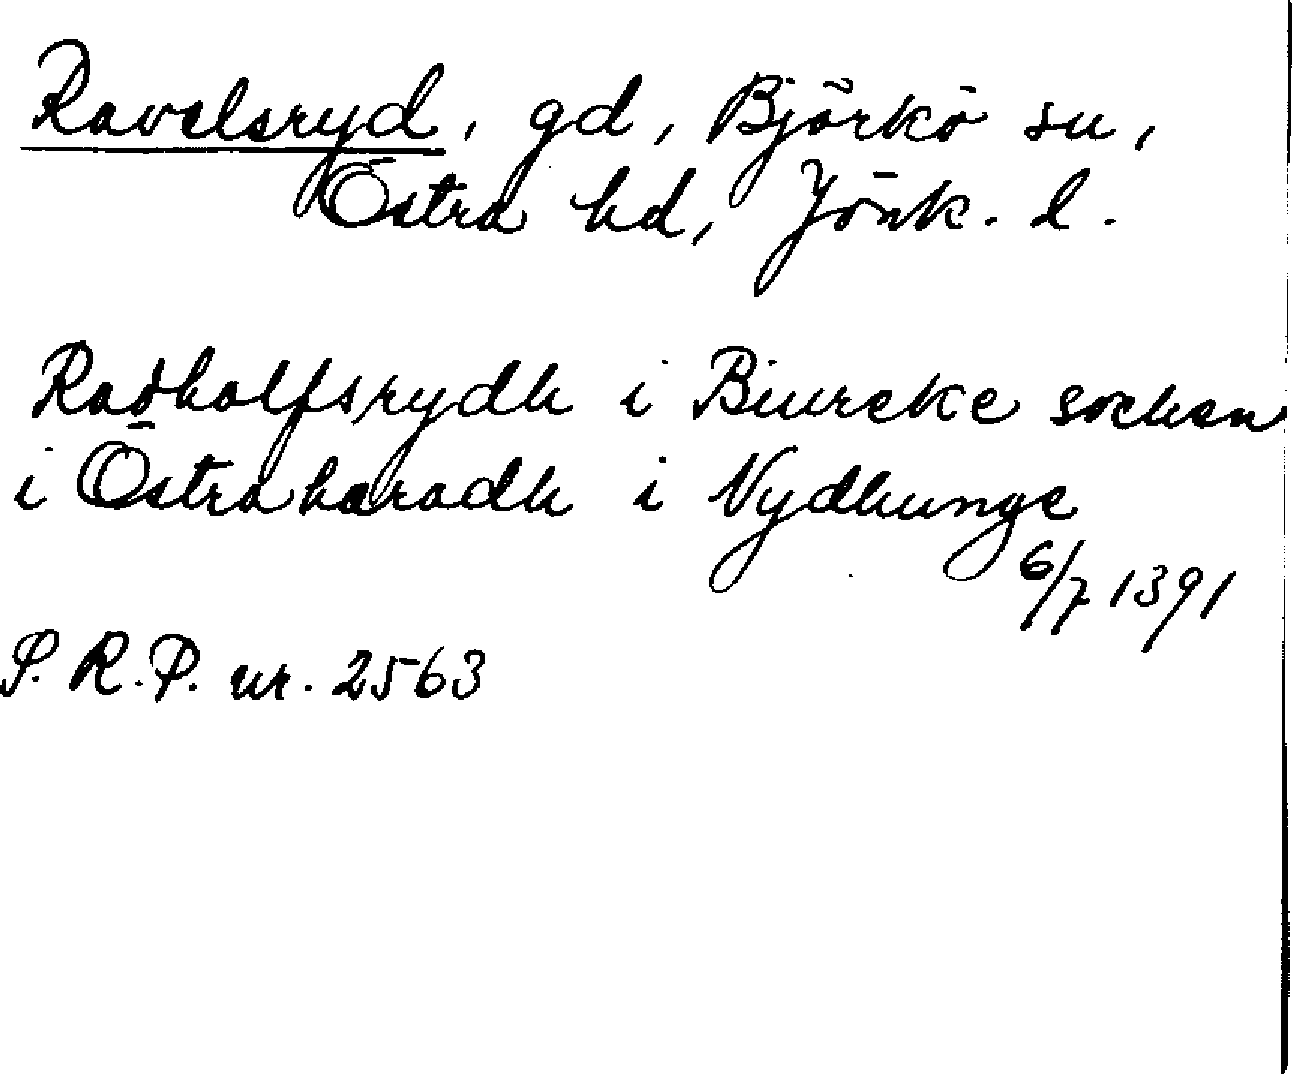 Ravelsryd, gd, Björkö sn,
Östra hd, Jönk. l.
Radholfsrydh i Biureke sochen
i Östrahæradh i Nydhunge
6/7 1391
S. R. P. nr. 2563